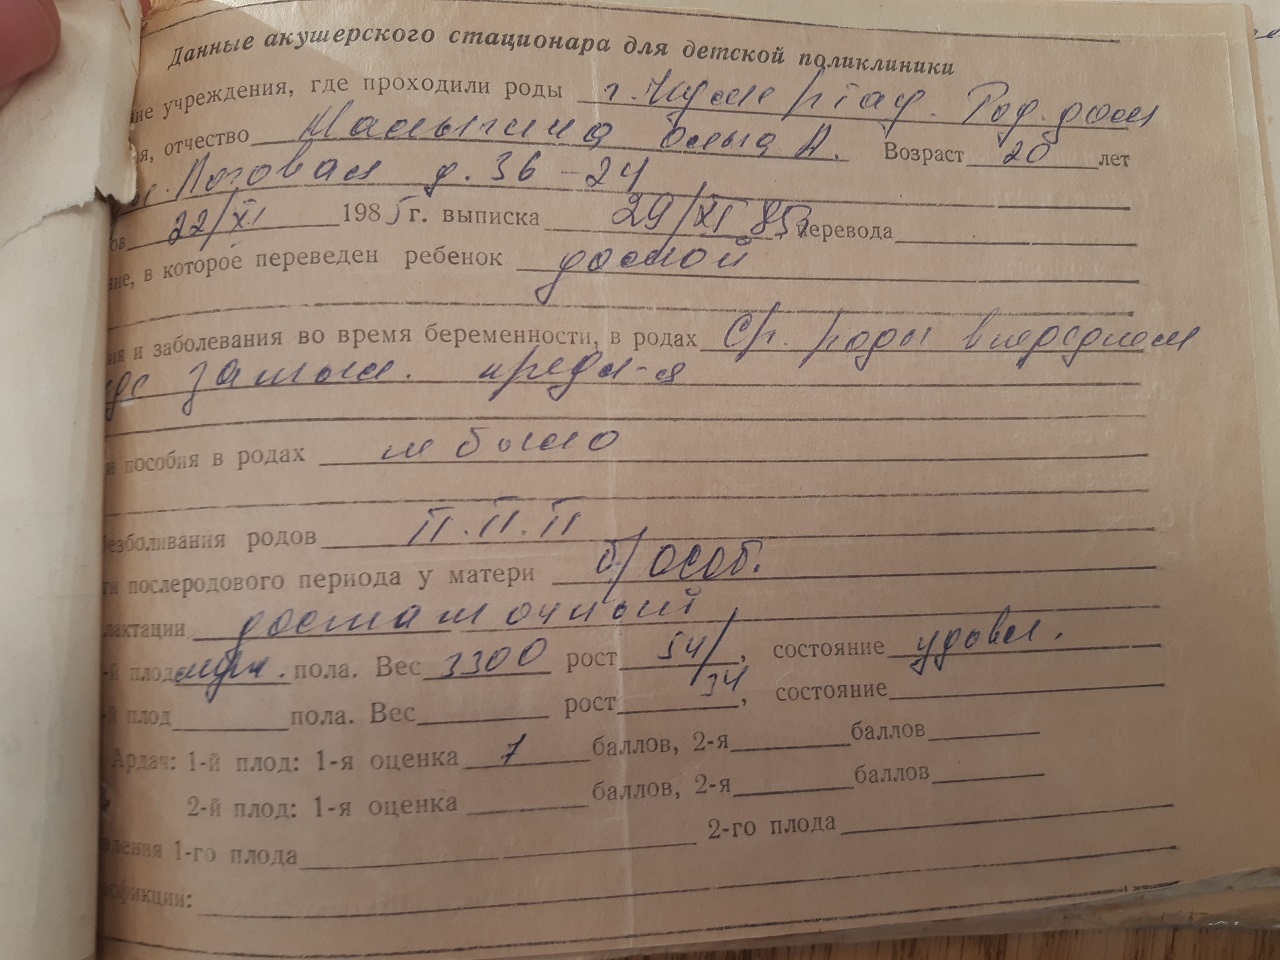 Данные акушерского стационара для детской поликлиники
ние учреждения, где проходили роды Род. дом
я, отчество Ольга А. Возраст 20 лет
Логовая д. 36 - 24
ов 22/XI 1985 г. выписка 29/XI 85, перевода
ние, в которое переведен ребенок домой
ия и заболевания во время беременности, в родах Ср. роды в переднем
затыл. предл-я
и пособия в родах не было
безболивания родов П.П.П
ти послеродового периода у матери б/особ.
лактации достаточный
-й плод муж. пола. Вес 3300 рост 54/, состояние удовл.
34
-й плод пола. Вес рост , состояние
Ардач: 1-й плод: 1-я оценка 7 баллов, 2-я баллов
2-й плод: 1-я оценка баллов, 2-я баллов
вления 1-го плода 2-го плода
офикции: